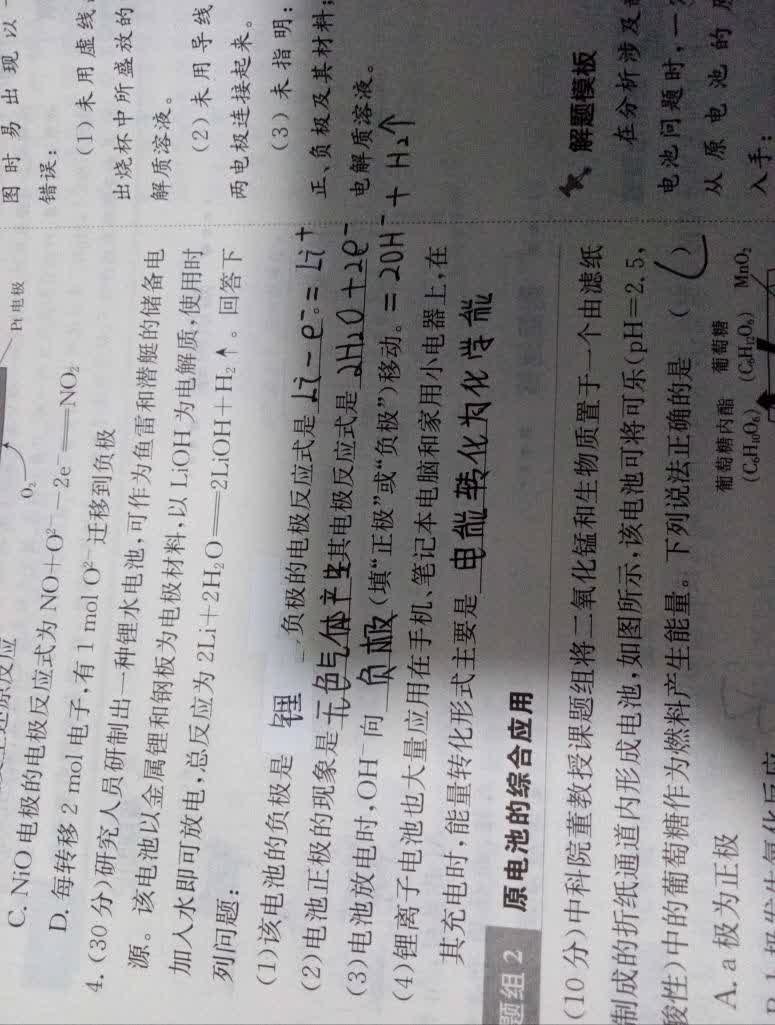 O₂
Pt电极
C. NiO电极的电极反应式为NO+O²⁻-2e⁻══NO₂
D. 每转移2 mol电子,有1 mol O²⁻迁移到负极
4. (30分)研究人员研制出一种锂水电池,可作为鱼雷和潜艇的储备电
源。该电池以金属锂和钢板为电极材料,以LiOH为电解质,使用时
加入水即可放电,总反应为2Li+2H₂O══2LiOH+H₂↑。回答下
列问题:
(1)该电池的负极是 锂 ,负极的电极反应式是 Li-e⁻=Li⁺
(2)电池正极的现象是无色气体产生其电极反应式是 2H₂O+2e⁻
=2OH⁻+H₂↑
(3)电池放电时,OH⁻向 负极 (填“正极”或“负极”)移动。
(4)锂离子电池也大量应用在手机、笔记本电脑和家用小电器上,在
其充电时,能量转化形式主要是 电能转化为化学能
题组2 原电池的综合应用
(10分)中科院董教授课题组将二氧化锰和生物质置于一个由滤纸
制成的折纸通道内形成电池,如图所示,该电池可将可乐(pH=2.5,
酸性)中的葡萄糖作为燃料产生能量。下列说法正确的是 ( )
葡萄糖内酯 葡萄糖
(C₆H₁₀O₆) (C₆H₁₂O₆) MnO₂
A. a极为正极
图时易出现以
错误:
(1)未用虚线
出烧杯中所盛放的
解质溶液。
(2)未用导线
两电极连接起来。
(3)未指明:
正、负极及其材料;
电解质溶液。
解题模板
在分析涉及
电池问题时,一
从原电池的
入手: